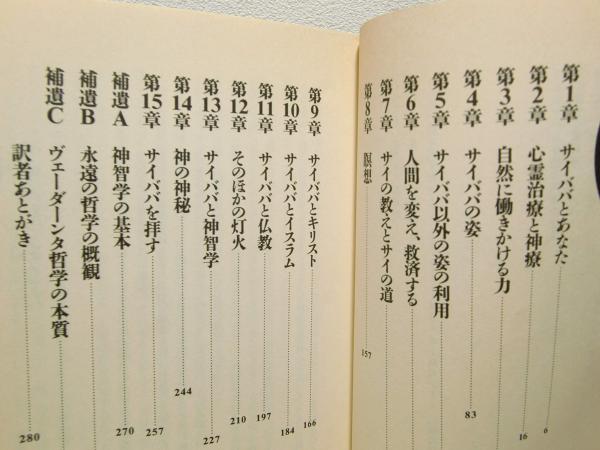 第1章 サイババとあなた 6
第2章 心霊治療と神療 16
第3章 自然に働きかける力
第4章 サイババの姿 83
第5章 サイババ以外の姿の利用
第6章 人間を変え、救済する
第7章 サイの教えとサイの道
第8章 瞑想 157
第9章 サイババとキリスト 166
第10章 サイババとイスラム 184
第11章 サイババと仏教 197
第12章 そのほかの灯火 210
第13章 サイババと神智学 227
第14章 神の神秘 244
第15章 サイババを拝す 257
補遺A 神智学の基本 270
補遺B 永遠の哲学の概観
補遺C ヴェーダーンタ哲学の本質
訳者あとがき 280